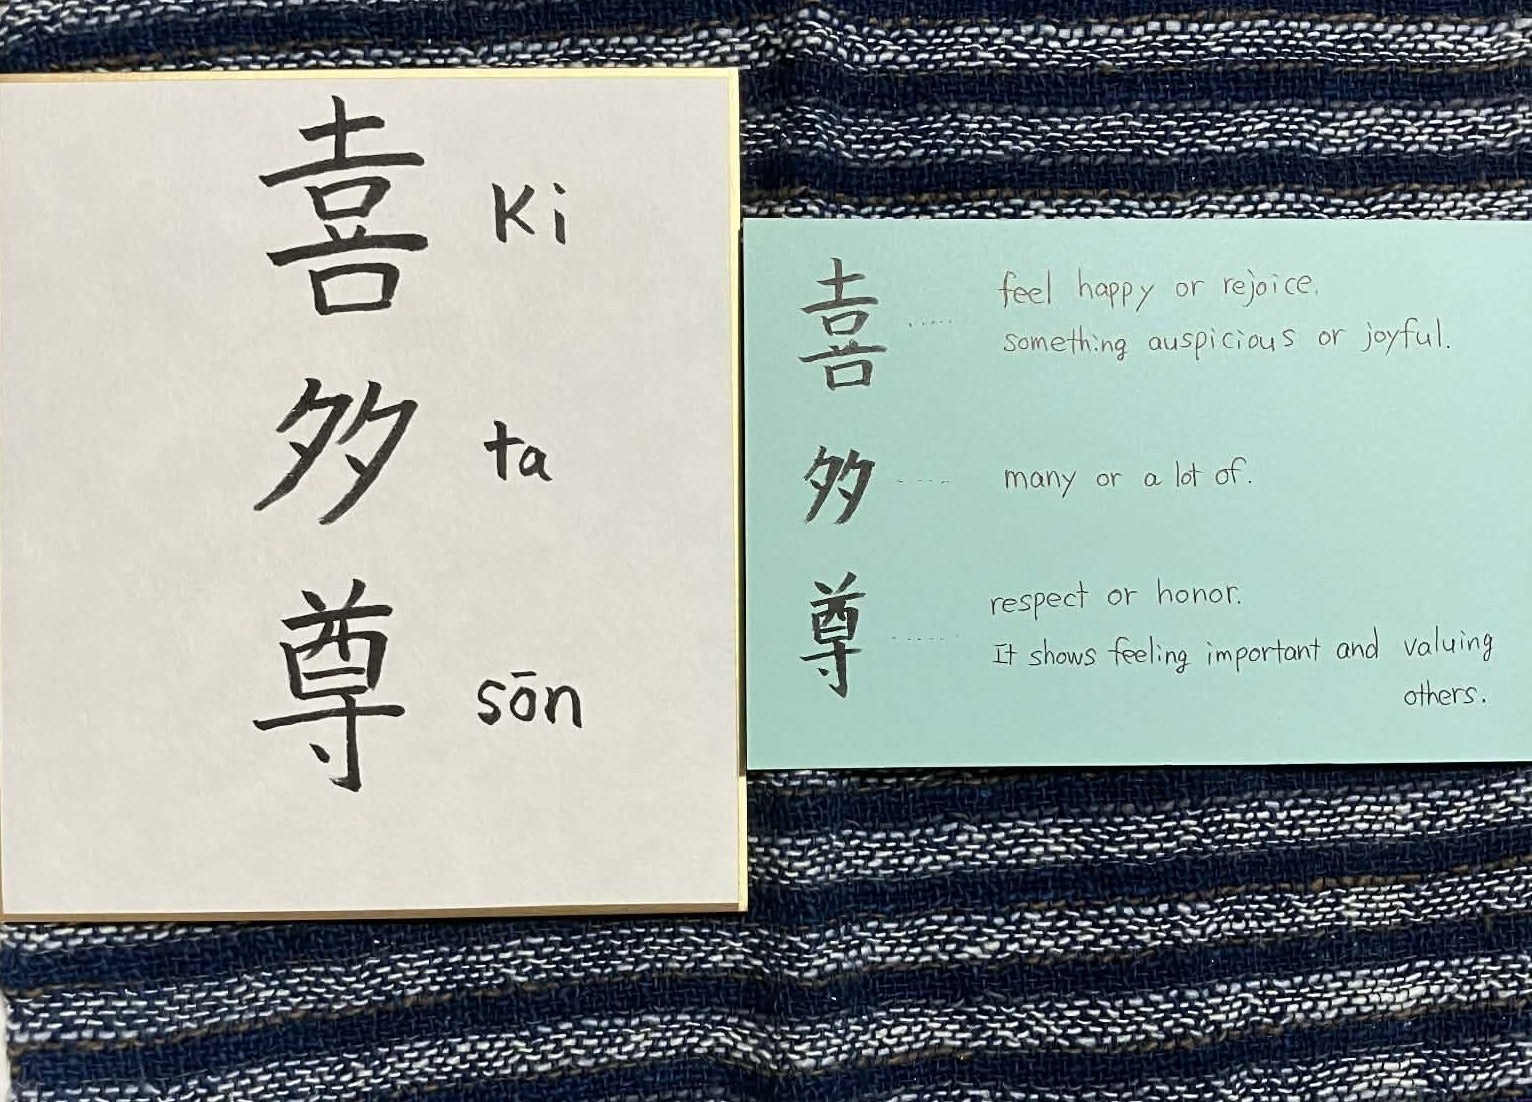 喜 Ki
多 ta
尊 sōn
喜 ..... feel happy or rejoice.
something auspicious or joyful.
多 ..... many or a lot of.
尊 ..... respect or honor.
It shows feeling important and valuing
others.